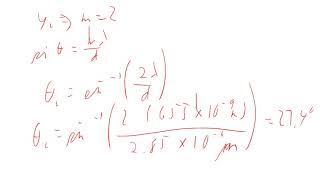 y₂ ⇒ m = 2
sin θ = mλ/d
θ₂ = sin⁻¹(2λ/d)
θ₂ = sin⁻¹(2 (655 × 10⁻⁹ m)/2.85 × 10⁻⁶ m) = 27.4°